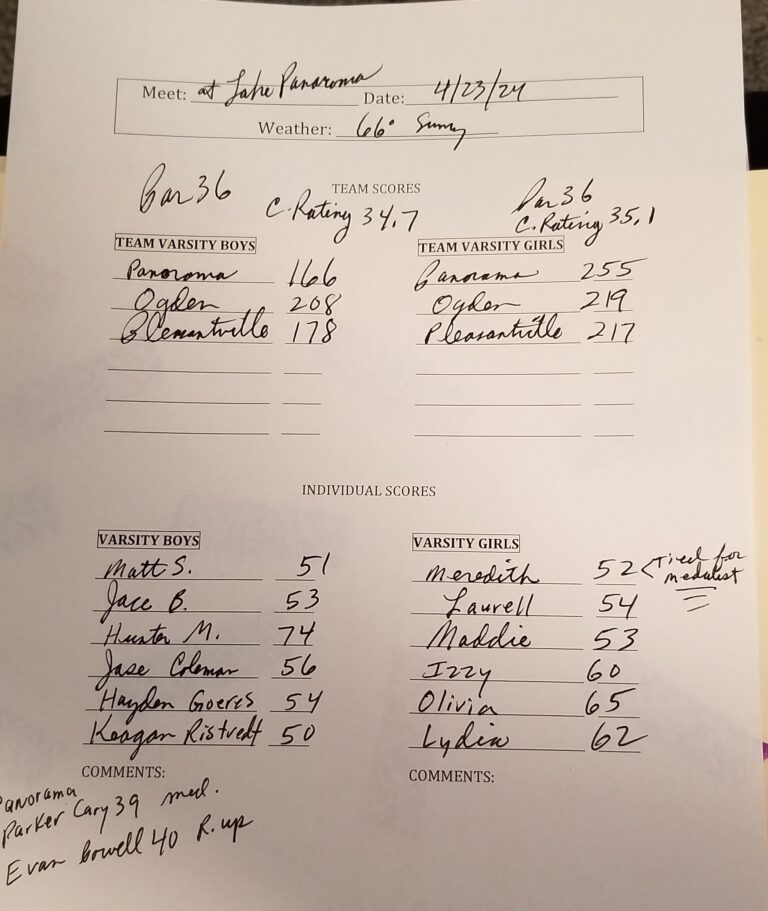 Meet: at Lake Panaroma Date: 4/23/24
Weather: 66° Sunny
TEAM SCORES
Par 36
C. Rating 34.7
Par 36
C. Rating 35.1
TEAM VARSITY BOYS
Panorama 166
Ogden 208
Plesantville 178
TEAM VARSITY GIRLS
Panorama 255
Ogden 219
Pleasantville 217
INDIVIDUAL SCORES
VARSITY BOYS
Matt S. 51
Jace B. 53
Hunter M. 74
Jase Coleman 56
Hayden Goeres 54
Keagan Ristvedt 50
COMMENTS:
Panorama
Parker Cary 39 med.
Evan 40 R. up
VARSITY GIRLS
Meredith 52 < Tied for
medalist
Laurell 54
Maddie 53
Izzy 60
Olivia 65
Lydia 62
COMMENTS: